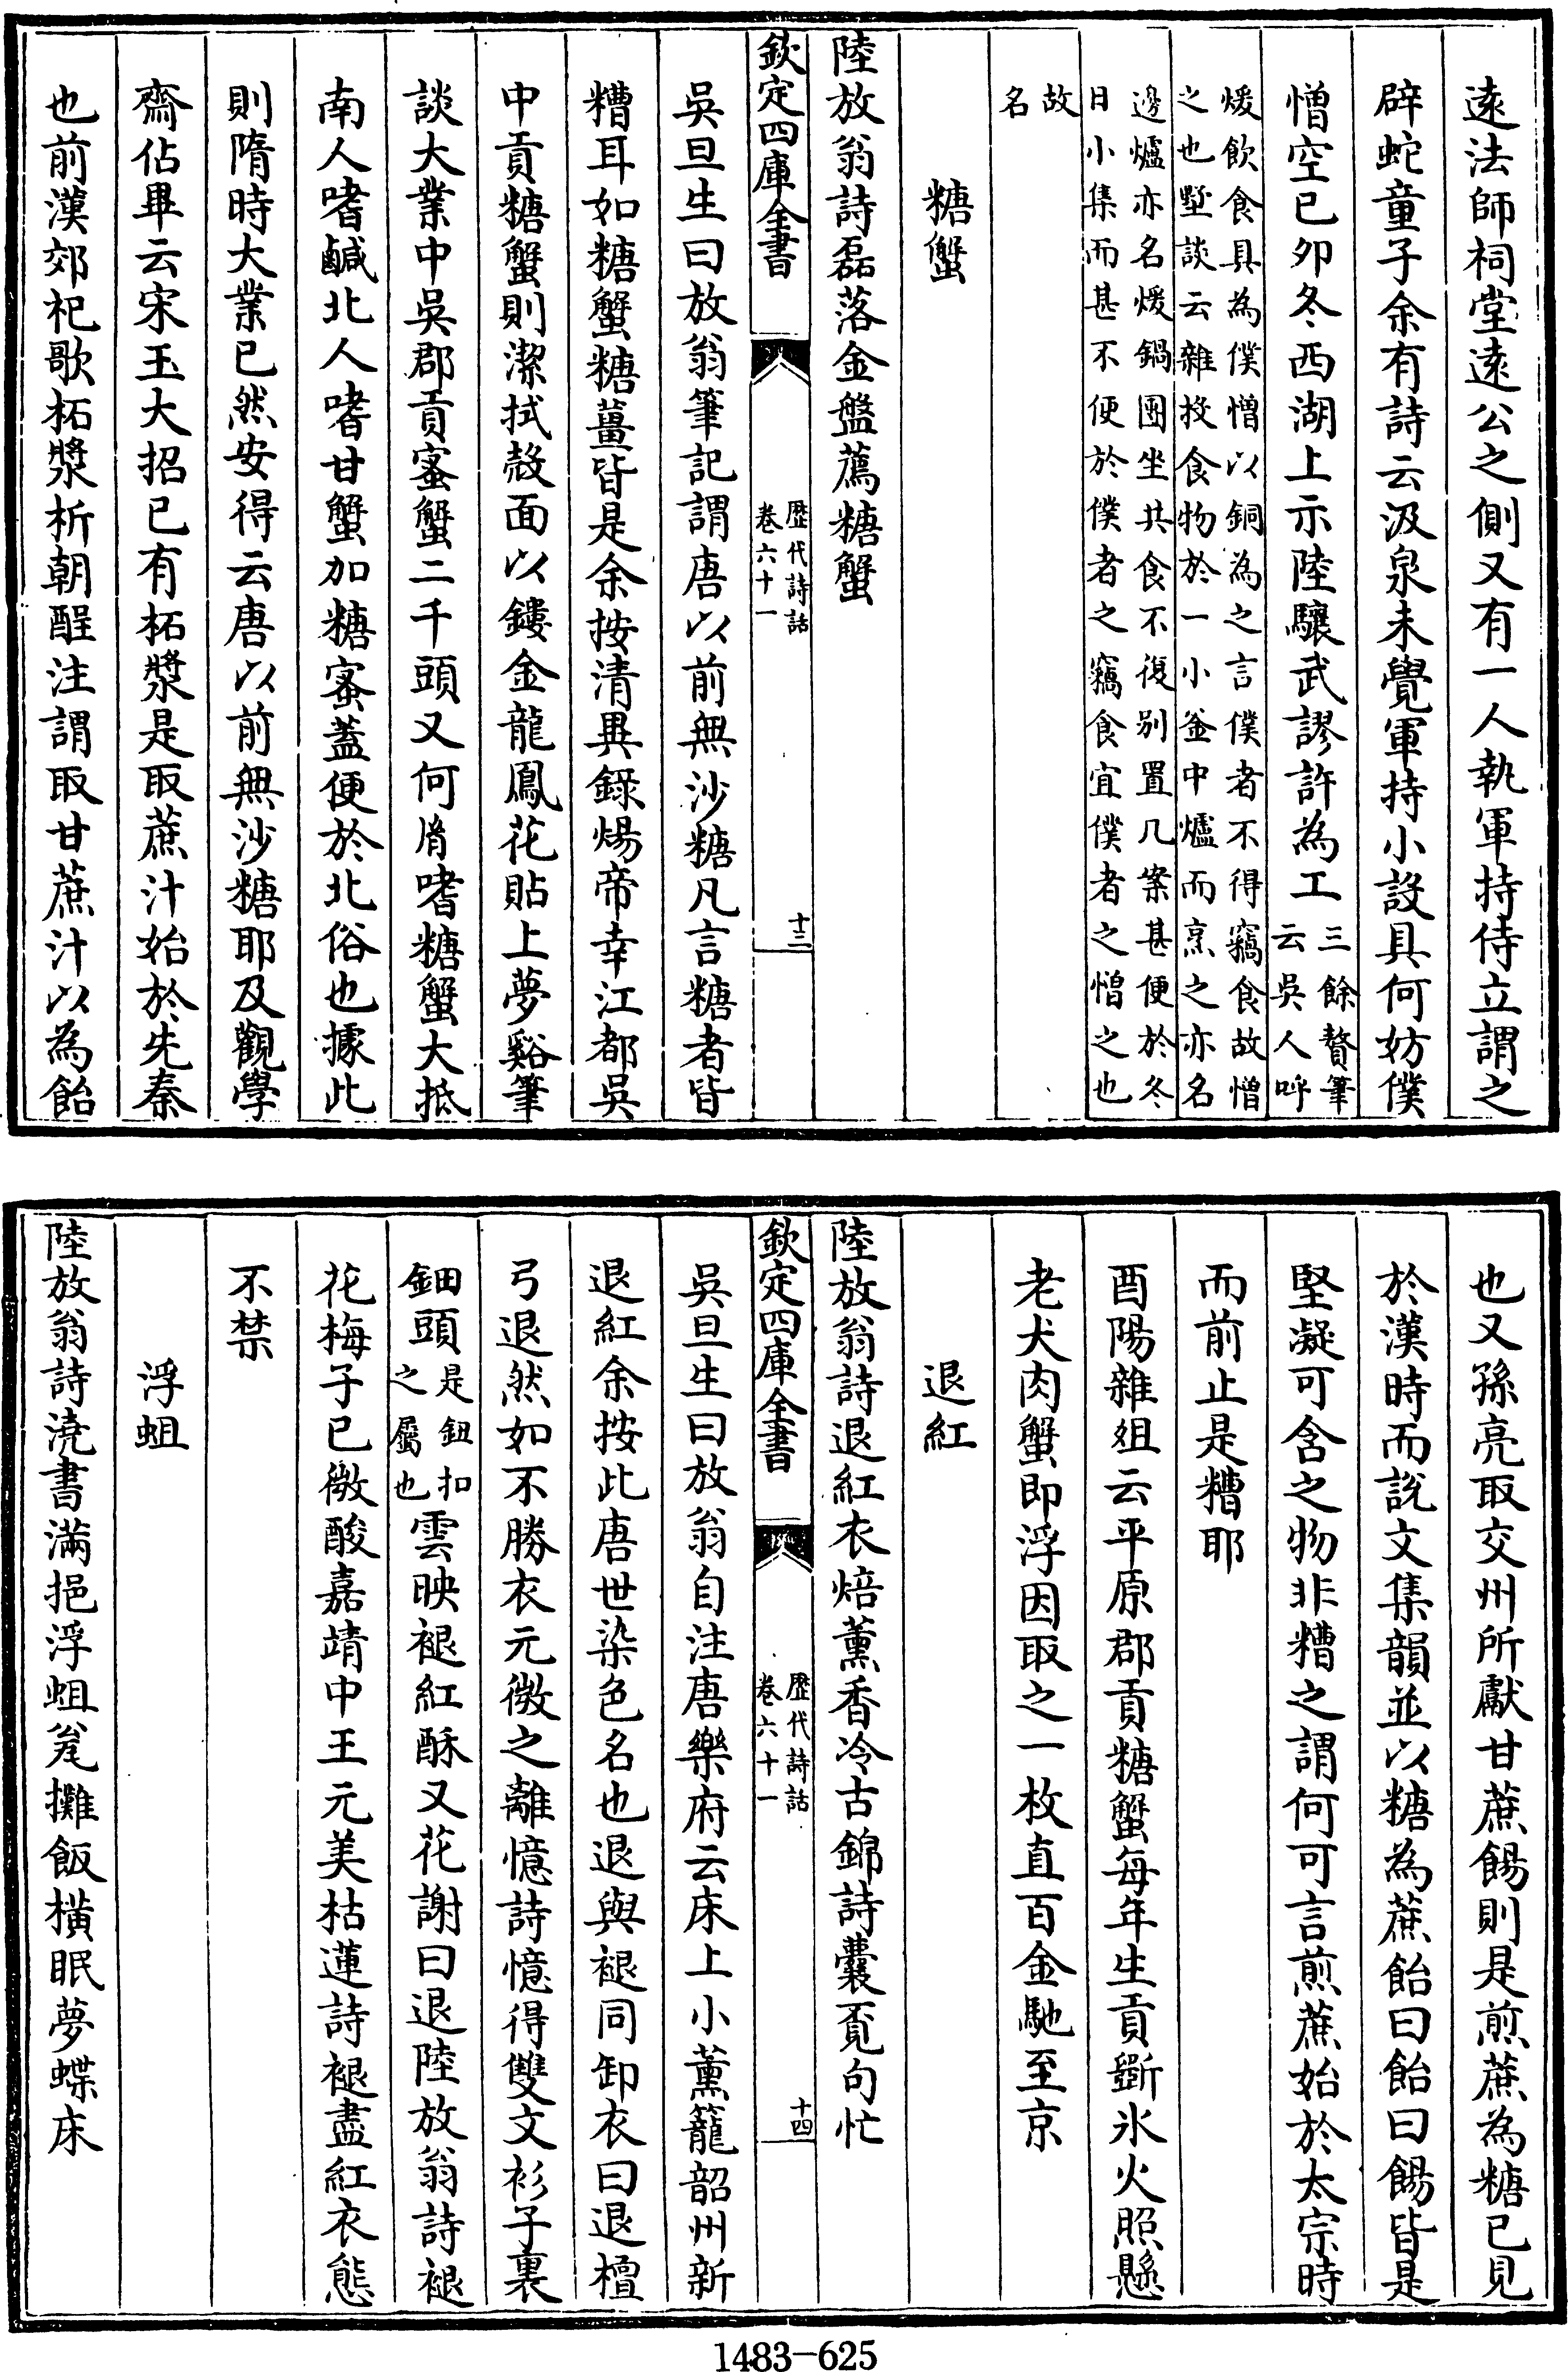 遠法師祠堂遠公之側又有一人執軍持侍立謂之
辟蛇童子余有詩云汲泉未覺軍持小設具何妨僕
憎空已卯冬西湖上示陸驤武謬許為工三餘贅筆云吳人呼
煖飲食具為僕憎以銅為之言僕者不得竊食故憎
之也墅談云雜投食物於一小釜中爐而烹之亦名
邊爐亦名煖鍋團坐共食不復別置几案甚便於冬
日小集而甚不便於僕者之竊食宜僕者之憎之也
故名
糖蟹
陸放翁詩磊落金盤薦糖蟹
欽定四庫全書
歷代詩話
卷六十一
十三
吳旦生曰放翁筆記謂唐以前無沙糖凡言糖者皆
糟耳如糖蟹糖薑皆是余按清異錄煬帝幸江都吳
中貢糖蟹則潔拭殼面以鏤金龍鳳花貼上夢谿筆
談大業中吳郡貢蜜蟹二千頭又何胤嗜糖蟹大抵
南人嗜鹹北人嗜甘蟹加糖蜜蓋便於北俗也據此
則隋時大業已然安得云唐以前無沙糖耶及觀學
齋佔畢云宋玉大招已有柘漿是取蔗汁始於先秦
也前漢郊祀歌柘漿析朝酲注謂取甘蔗汁以為飴
也又孫亮取交州所獻甘蔗餳則是煎蔗為糖已見
於漢時而說文集韻並以糖為蔗飴曰飴曰餳皆是
堅凝可含之物非糟之謂何可言煎蔗始於太宗時
而前止是糟耶
酉陽雜俎云平原郡貢糖蟹每年生貢斵氷火照懸
老犬肉蟹即浮因取之一枚直百金馳至京
退紅
陸放翁詩退紅衣焙薰香冷古錦詩囊覔句忙
欽定四庫全書
歷代詩話
卷六十一
十四
吳旦生曰放翁自注唐樂府云床上小薰籠韶州新
退紅余按此唐世染色名也退與褪同卸衣曰退檀
弓退然如不勝衣元微之離憶詩憶得雙文衫子裏
鈿頭是鈕扣之屬也雲映褪紅酥又花謝曰退陸放翁詩褪
花梅子已微酸嘉靖中王元美枯蓮詩褪盡紅衣態
不禁
浮蛆
陸放翁詩澆書滿挹浮蛆瓮攤飯橫眠夢蝶床
1483-625